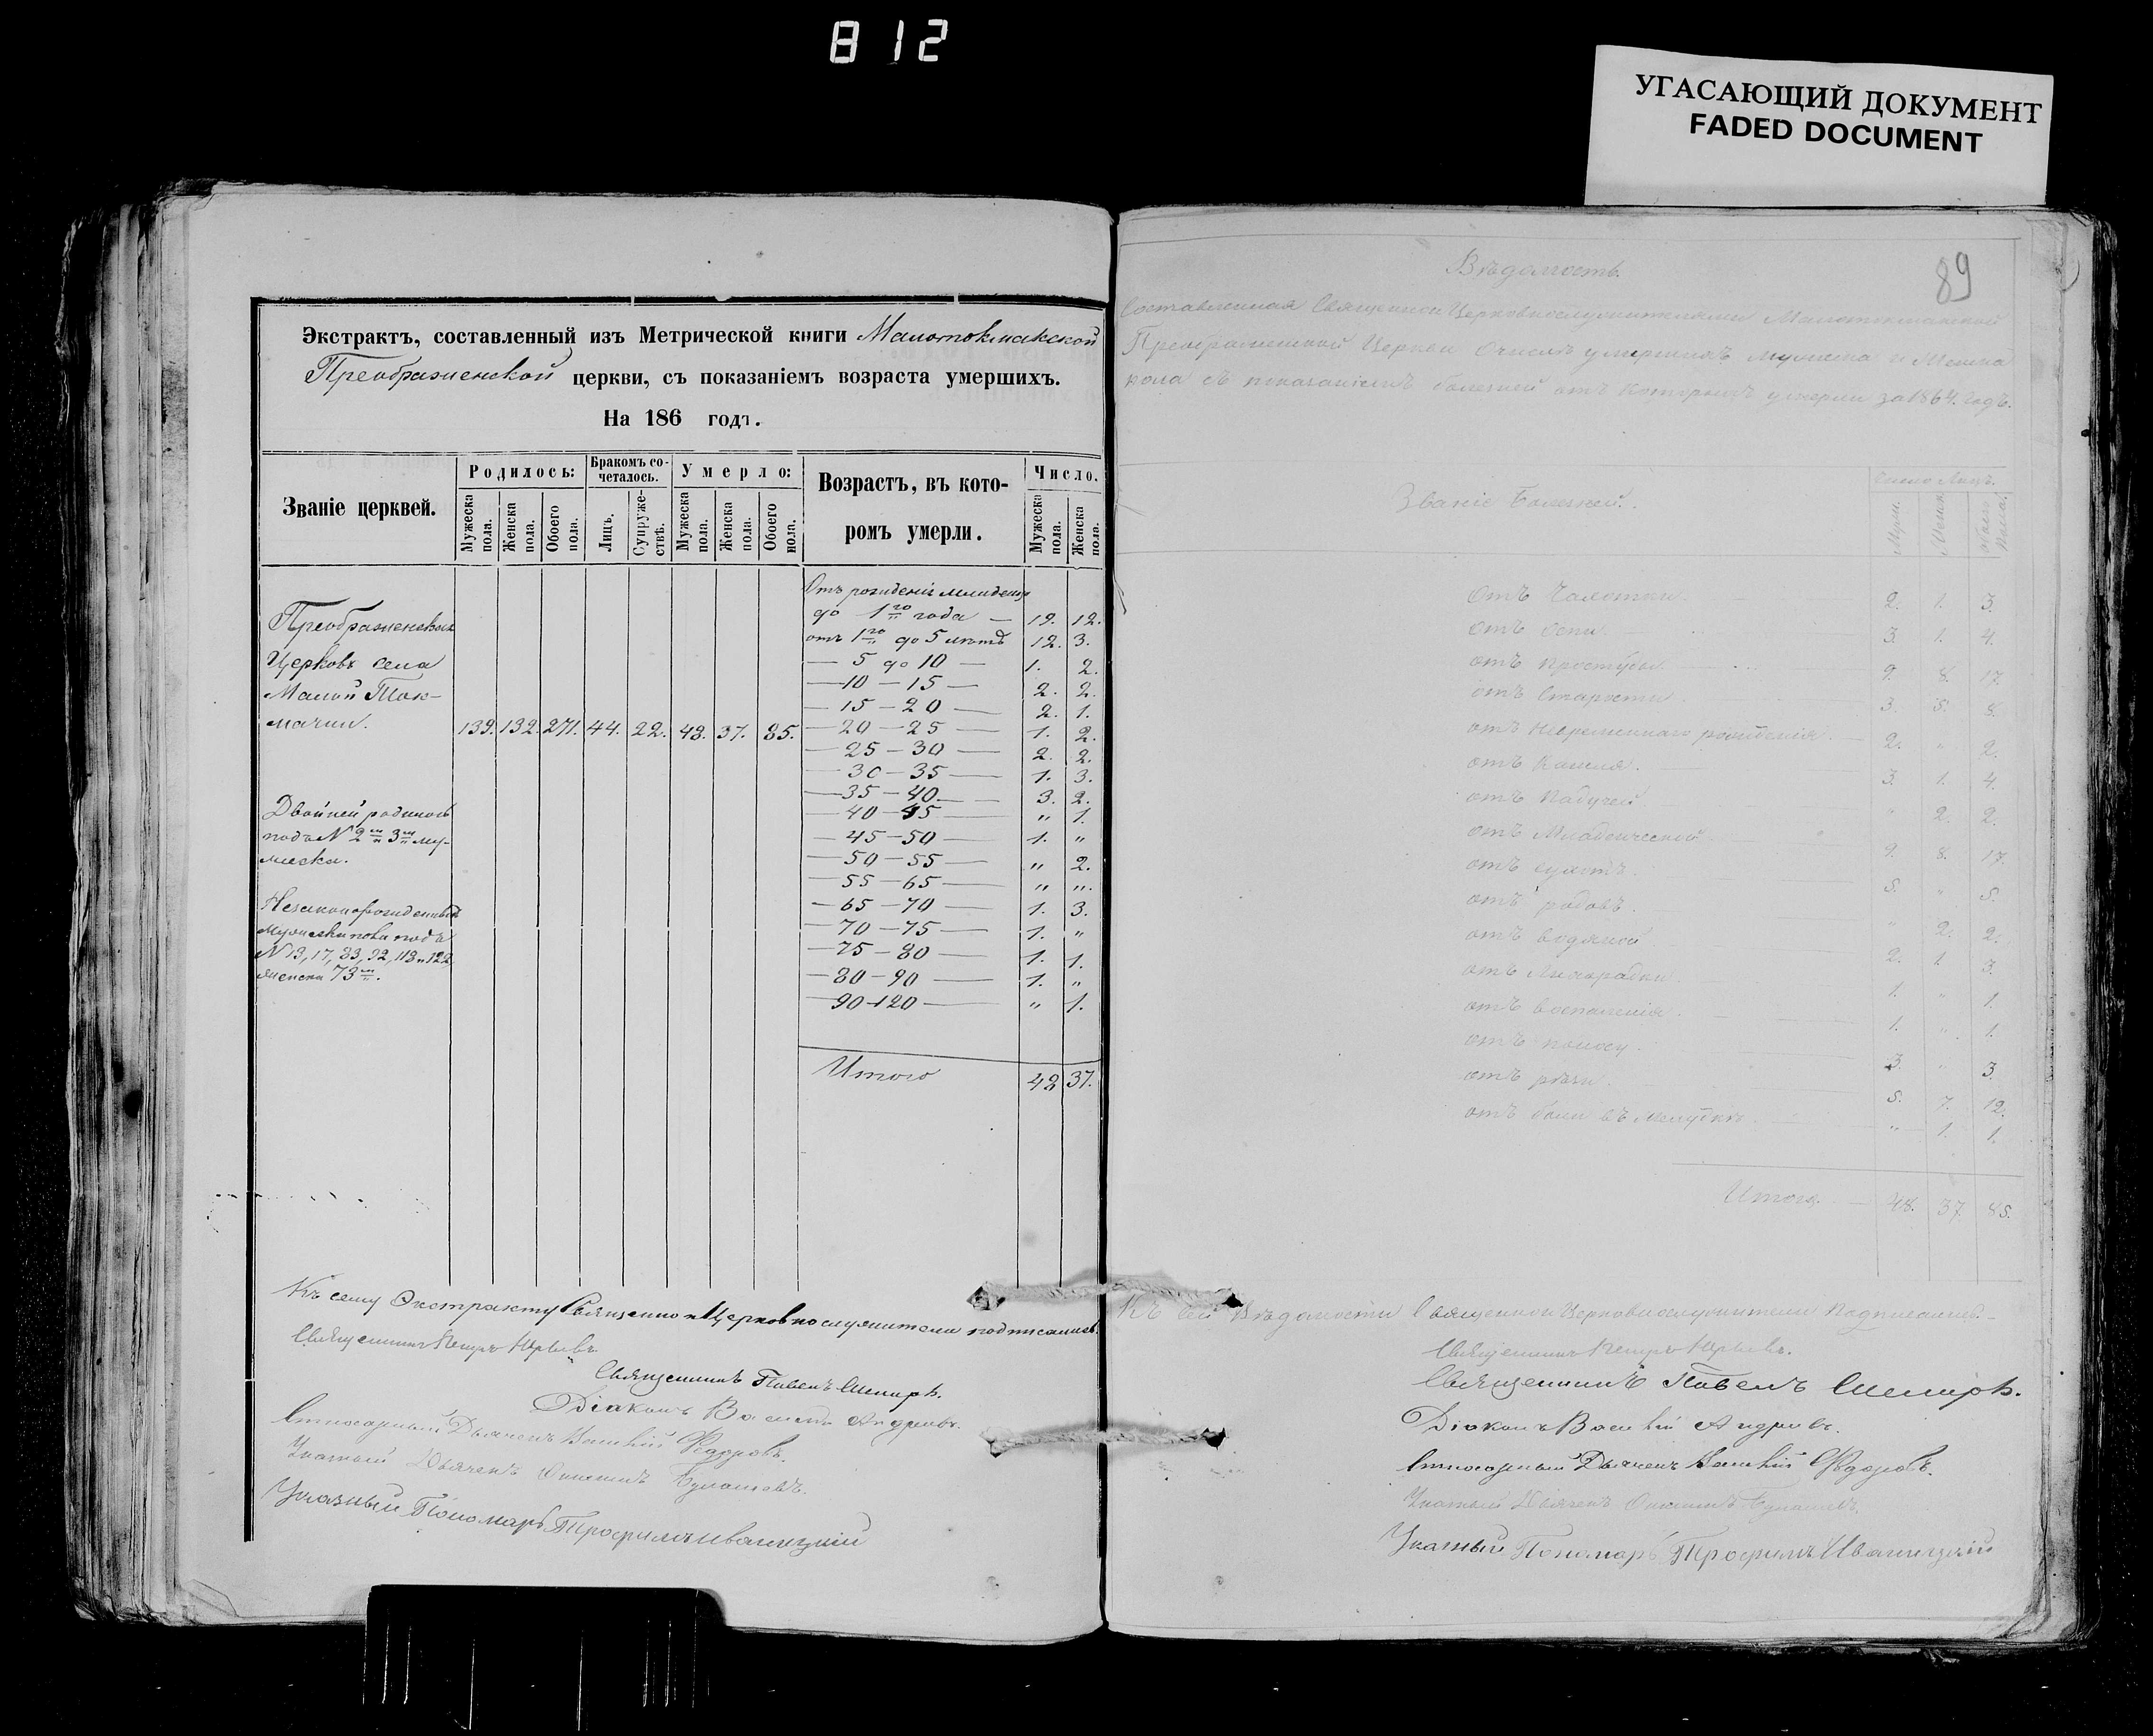 812
УГАСАЮЩИЙ ДОКУМЕНТ
FADED DOCUMENT
Экстрактъ, составленный изъ Метрической книги Малотокмакской
Преображенской церкви, съ показаніемъ возраста умершихъ.
На 186 годъ.
Званіе церквей.
Родилось:
Мужеска пола.
Женска пола.
Обоего пола.
Бракомъ сочеталось.
Лицъ.
Супружествъ.
Умерло:
Мужеска пола.
Женска пола.
Обоего пола.
Возрастъ, въ которомъ умерли.
Число.
Мужеска пола.
Женска пола.
Преображенская
Церковь села
Малой Ток-
мачки. 139. 132. 271. 44. 22. 48. 37. 85.
Двойней родилось
подъ № 2м и 3м му-
жеска.
Незаконорожденныхъ
Мужеска пола подъ
№ 13, 17, 83, 92, 118 и 122
женска 73м.
Отъ рожденія младенцы
до 1го года — 19. 12.
отъ 1го до 5 лѣтъ 12. 3.
— 5 до 10 — 1. 2.
— 10 — 15 — 2. 2.
— 15 — 20 — 2. 1.
— 20 — 25 — 1. 2.
— 25 — 30 — 2. 2.
— 30 — 35 — 1. 3.
— 35 — 40 — 3. 2.
— 40 — 45 — " 1.
— 45 — 50 — 1. "
— 50 — 55 — " 2.
— 55 — 65 — " "
— 65 — 70 — 1. 3.
— 70 — 75 — 1. "
— 75 — 80 — 1. 1.
— 80 — 90 — 1. "
— 90 — 120 — " 1.
Итого 48 37.
Къ сему Экстракту Священно и Церковнослужители подписались:
Священникъ Петръ Юрьевъ
Священникъ Павелъ
Діаконъ Василій
Дьячекъ Василій Федоровъ.
Указный Дьячекъ
Указный Пономарь Трофимъ Иваницкій
89
Вѣдомость
Составленная Священно и Церковнослужителями Малотокмакской
Преображенской Церкви о числѣ умершихъ мужеска и женска
пола съ показаніемъ болезней отъ которыхъ умерли за 1864. годъ.
Званіе Болезней.
Число Лицъ.
Муж.
Женск.
Обоего пола.
Отъ Чахотки 2. 1. 3.
отъ оспы 3. 1. 4.
отъ простуды 9. 8. 17.
отъ Старости 3. 5. 8.
отъ Невременнаго рожденія 2. " 2.
отъ Кашля 3. 1. 4.
отъ Падучей " 2. 2.
отъ Младенческой 9. 8. 17.
отъ сухотъ 5. " 5.
отъ родовъ " 2. 2.
отъ водяной 2. 1. 3.
отъ Лихорадки 1. " 1.
отъ воспаленія 1. " 1.
отъ поносу 3. " 3.
отъ рѣзи 5. 7. 12.
отъ боли въ желудкѣ " 1. 1.
Итого — 48. 37. 85.
Къ сей Вѣдомости Священно и Церковнослужители Подписались:
Священникъ Петръ Юрьевъ.
Священникъ Павелъ
Діаконъ Василій
Дьячекъ Василій Федоровъ.
Указный Дьячекъ
Указный Пономарь Трофимъ Иваницкій